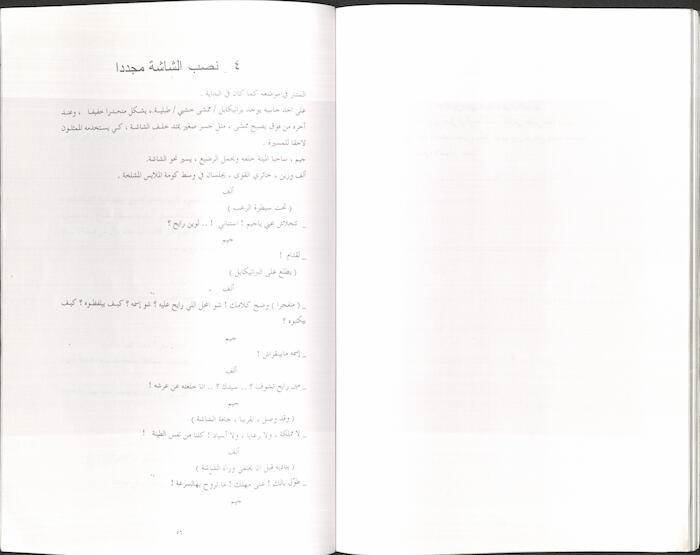 ٤ ـ نصب الشاشة مجددا
الستار في موضعه كما كان في البداية .
على احد جانبيه يوجد براتيكابل / ممشى خشبي / طبلية ، يشكل منحدرا خفيفا ، وعند
آخره من فوق يصبح ممشى ، مثل جسر صغير يمتد خلف الشاشة ، كي يستخدمه الممثلون
لاحقا للمسيرة .
جيم ، ساحبا الميتة خلفه ويحمل الرضيع ، يسير نحو الشاشة.
ألف وزين ، خائري القوى ، يجلسان في وسط كومة الملابس المشلحة .
ألف
( تحت سيطرة الرعب )
_ تتخلاش عني ياجيم ! استناني ! .. لوين رايح ؟
جيم
_ لقدام !
( يطلع على البراتيكابل )
ألف
_ ( منفجرا ) وضح كلامك ! شو المحل اللي رايح عليه ؟ شو إسمه ؟ كيف بيلفظوه ؟ كيف
بيكتبوه ؟
جيم
_ إسمه مابينقراش !
ألف
_ مين رايح تشوف ؟ .. سيدك ؟ .. انا خلعته عن عرشه !
جيم
( وقد وصل ، تقريبا ، حافة الشاشة )
_ لا مملكة ، ولا رعايا ، ولا أسياد ! كلنا من نفس الطينة !
ألف
( يناديه قبل ان يختفي وراء الشاشة )
_ طوّل بالك ! على مهلك ! ما تروح بهالسرعة !
جيم
٥٦